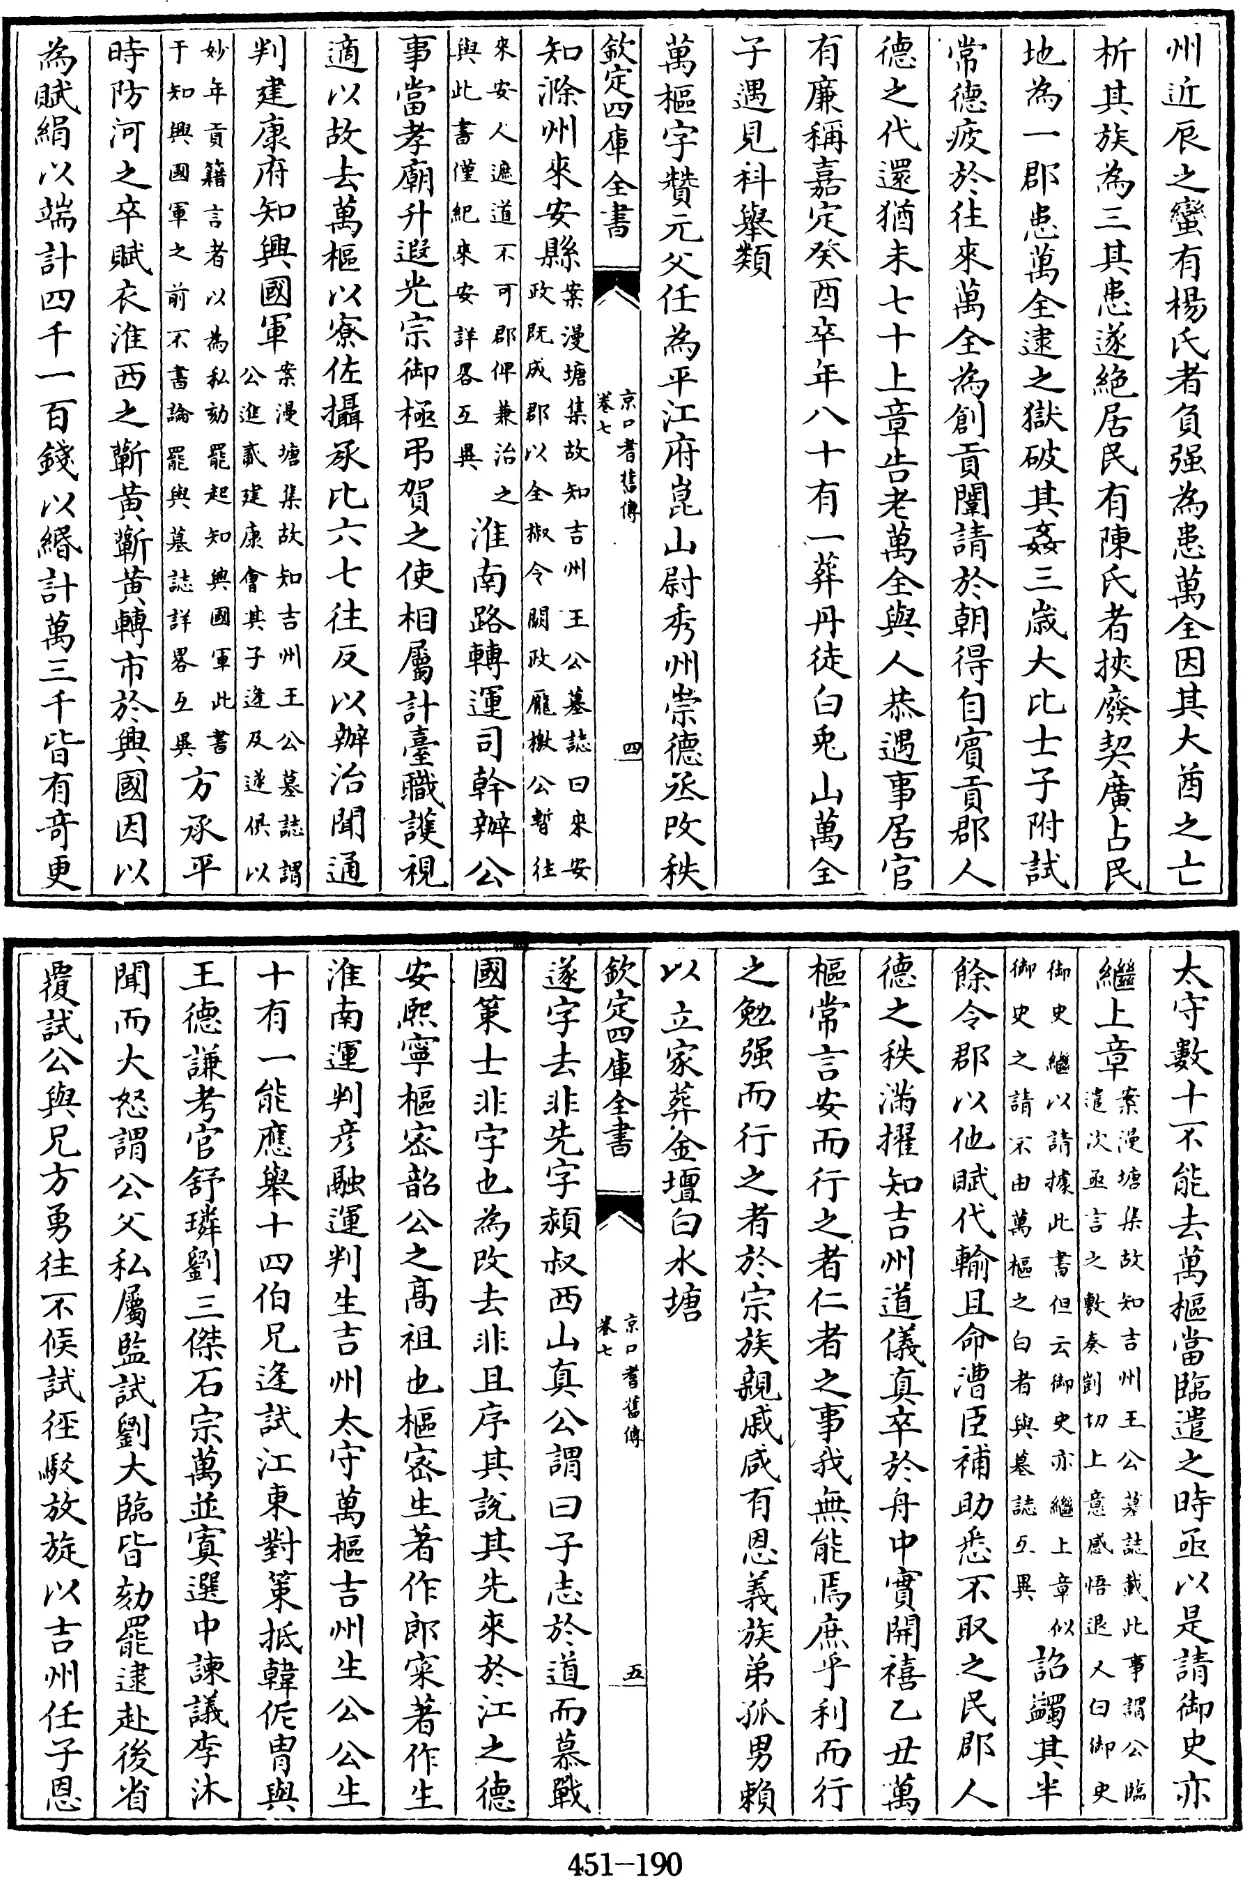 州近辰之蠻有楊氏者負强為患萬全因其大酋之亡
析其族為三其患遂絶居民有陳氏者挾廢契廣占民
地為一郡患萬全逮之獄破其姦三歲大比士子附試
常德疲於往來萬全為創貢闈請於朝得自賓貢郡人
德之代還猶未七十上章告老萬全與人恭遇事居官
有廉稱嘉定癸酉卒年八十有一葬丹徒白兎山萬全
子遇見科舉類
萬樞字贊元父任為平江府崑山尉秀州崇德丞改秩
欽定四庫全書
京口耆舊傳
卷七
四
知滁州來安縣案漫塘集故知吉州王公墓誌曰來安
政既成郡以全椒令闕政龎檄公暫往
來安人遮道不可郡俾兼治之
與此書僅紀來安詳畧互異
淮南路轉運司幹辦公
事當孝廟升遐光宗御極弔賀之使相屬計臺職護視
適以故去萬樞以寮佐攝承比六七往反以辦治聞通
判建康府知興國軍案漫塘集故知吉州王公墓誌謂
公進貳建康會其子逢及遂俱以
妙年貢籍言者以為私劾罷起知興國軍此書
于知興國軍之前不書論罷與墓誌詳畧互異
方承平
時防河之卒賦衣淮西之蘄黄蘄黄轉市於興國因以
為賦絹以端計四千一百錢以緡計萬三千皆有竒更
太守數十不能去萬樞當臨遣之時亟以是請御史亦
繼上章案漫塘集故知吉州王公墓誌載此事謂公臨
遣次亟言之敷奏剴切上意感悟退又白御史
御史繼以請據此書但云御史亦繼上章似
御史之請不由萬樞之白者與墓誌互異
詔蠲其半
餘令郡以他賦代輸且命漕臣補助悉不取之民郡人
德之秩滿擢知吉州道儀真卒於舟中實開禧乙丑萬
樞常言安而行之者仁者之事我無能焉庶乎利而行
之勉强而行之者於宗族親戚咸有恩義族弟孤男賴
以立家葬金壇白水塘
欽定四庫全書
京口耆舊傳
卷七
五
遂字去非先字潁叔西山真公謂曰子志於道而慕戰
國策士非字也為改去非且序其說其先來於江之德
安熙寧樞宻韶公之髙祖也樞宻生著作郎寀著作生
淮南運判彦融運判生吉州太守萬樞吉州生公公生
十有一能應舉十四伯兄逢試江東對策抵韓侂胄與
王德謙考官舒璘劉三傑石宗萬並寘選中諫議李沐
聞而大怒謂公父私屬監試劉大臨皆劾罷逮赴後省
覆試公與兄方勇往不候試徑駁放旋以吉州任子恩
451-190